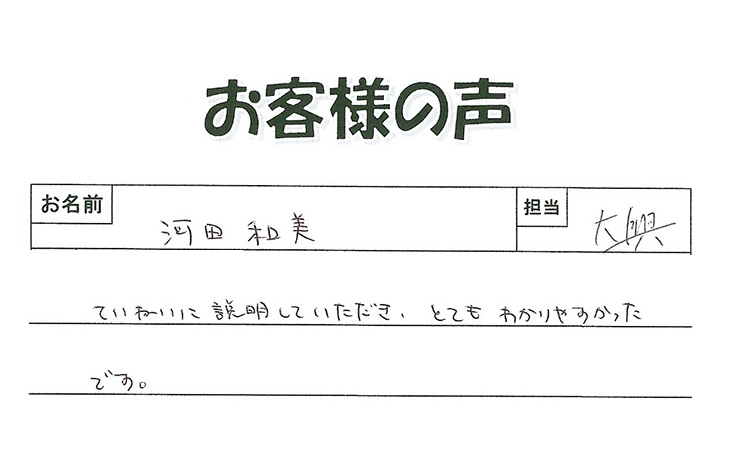 お客様の声
お名前 河田 和美 担当 大興
ていねいに説明していただき、とても わかりやすかった
です。